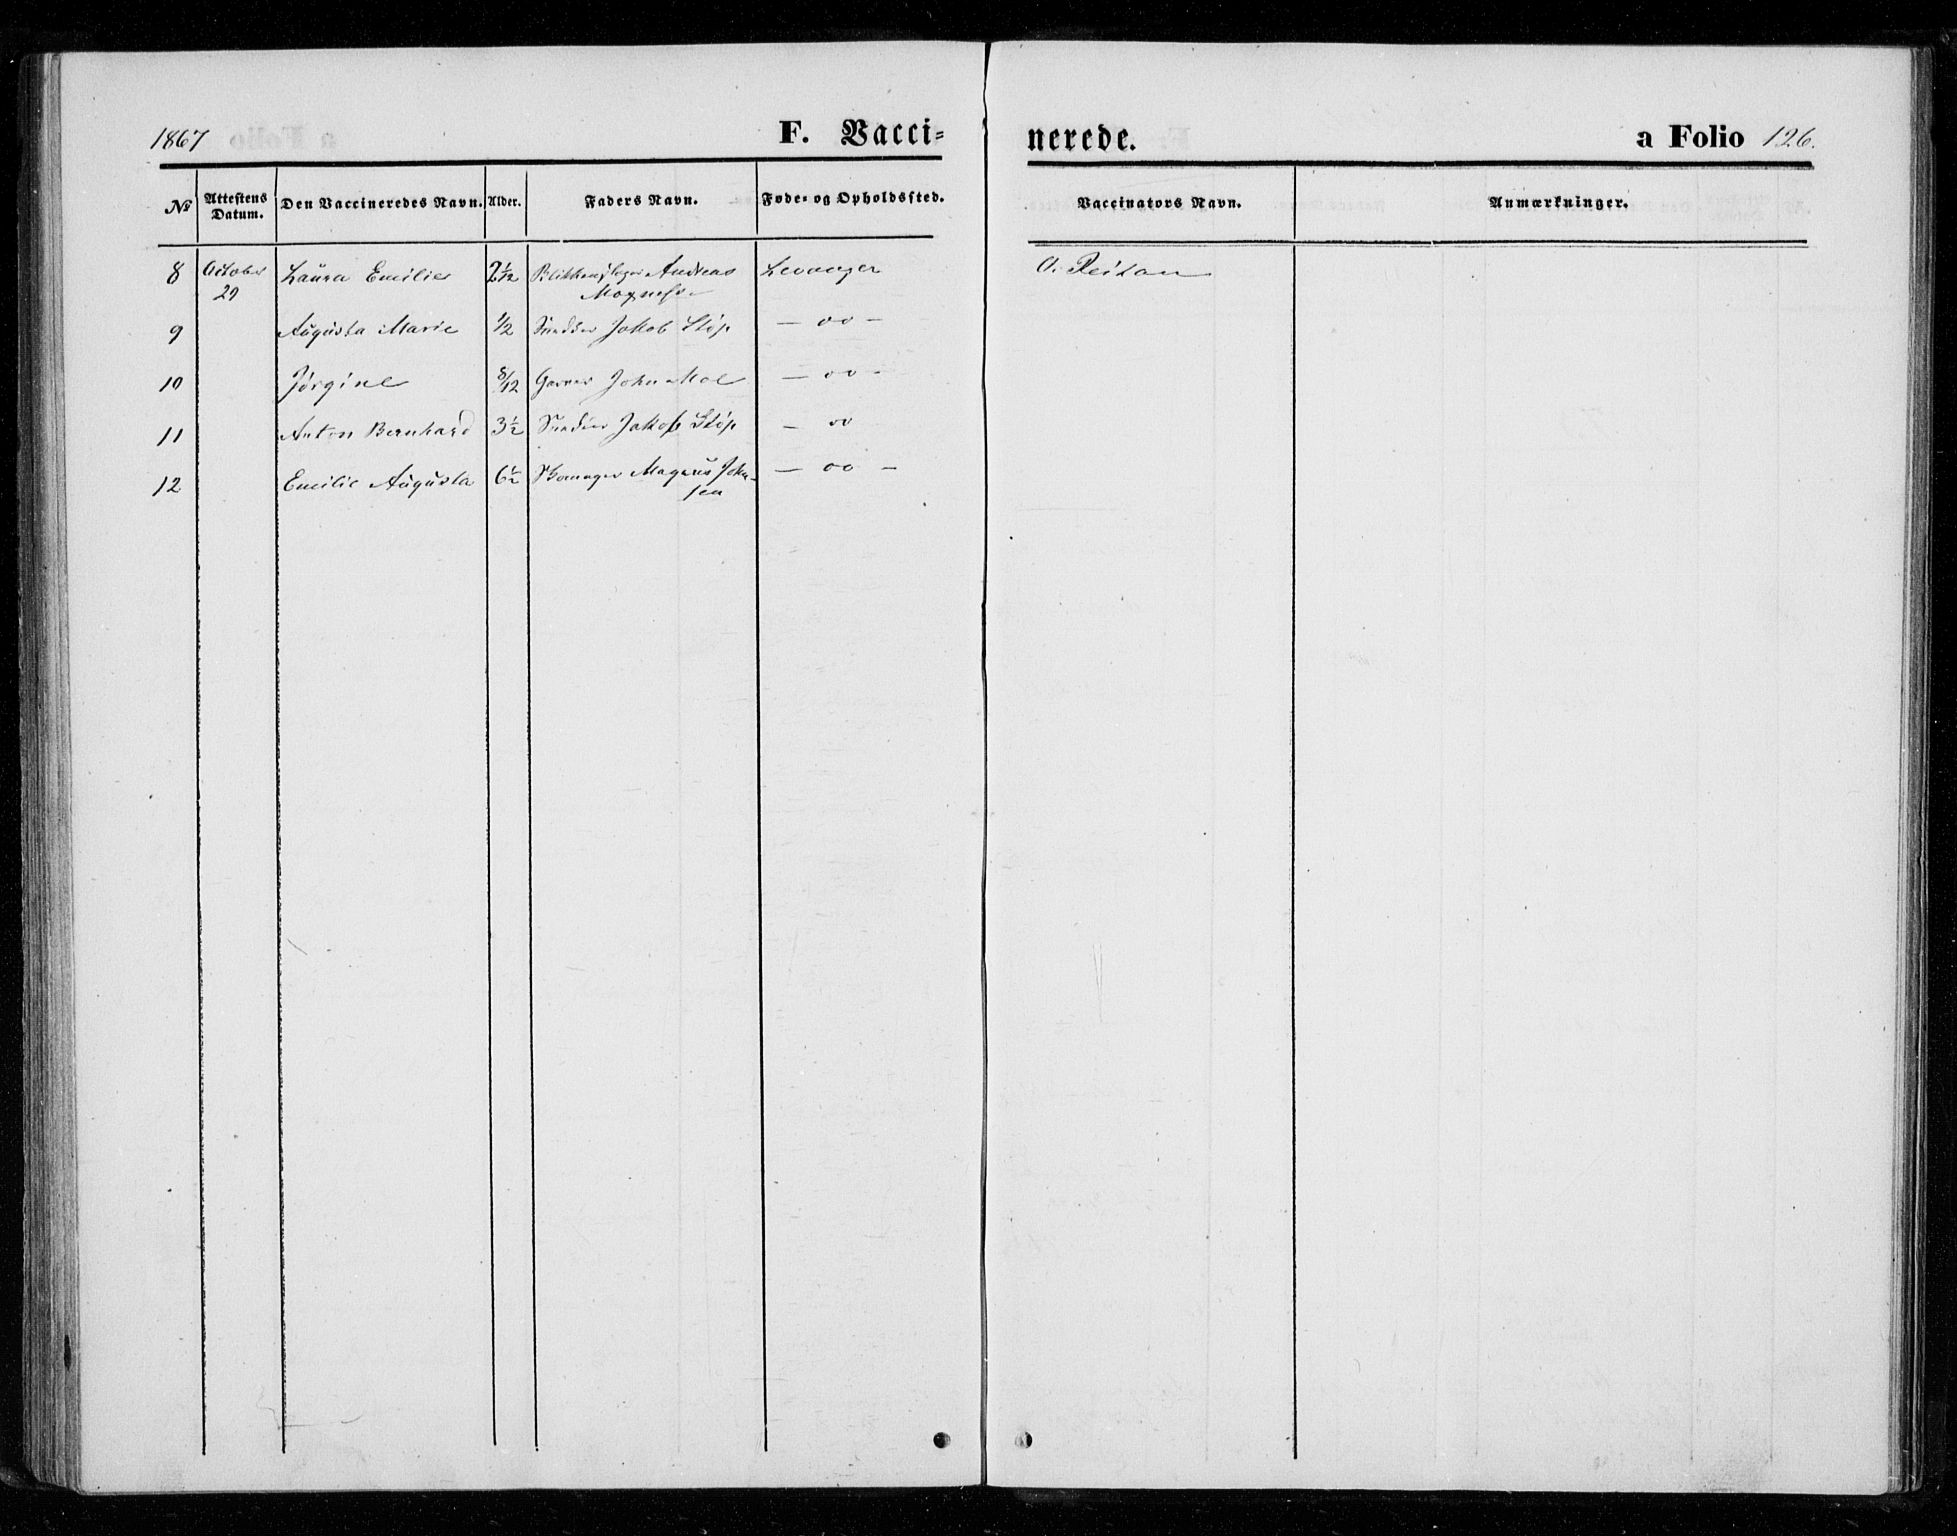 1867 F. Vacci= nerede. a Folio 126.
No Attestens Datum. Den Vaccineredes Navn. Alder. Faders Navn. Føde= og Opholdssted. Vaccinators Navn. Anmærkninger.
8 October Laura Emilie Andreas Levanger O. Reitan
29
9 Augusta Marie 1/2 Jakob Støp — oo —
10 Jørgine 8/12 Garver John Moe — oo —
11 Anton Bernhard 3½ Jakob Støp — oo
12 Emilie Augusta 6½ Skomager Magnus John=
sen — oo —